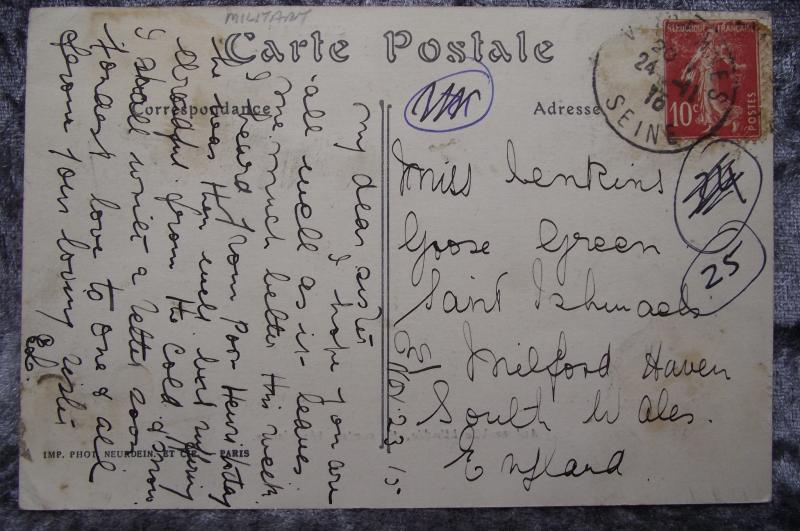 MILITANT
Carte Postale
Correspondance
Adresse
RÉPUBLIQUE FRANÇAISE
10c
POSTES
24
SEINE
25
Miss Jenkins
Goose Green
Saint Ishmaels
Milford Haven
South Wales.
England.
Nov. 23 15
My dear sister
I hope you are
all well as it leaves
me much better this week.
I heard from Poor Henri today
he was then well but suffering
dreadful from the cold & snow
I shall write a letter soon
Fondest love to one & all
from your loving sister
IMP. PHOT. NEURDEIN. ET CIE. - PARIS